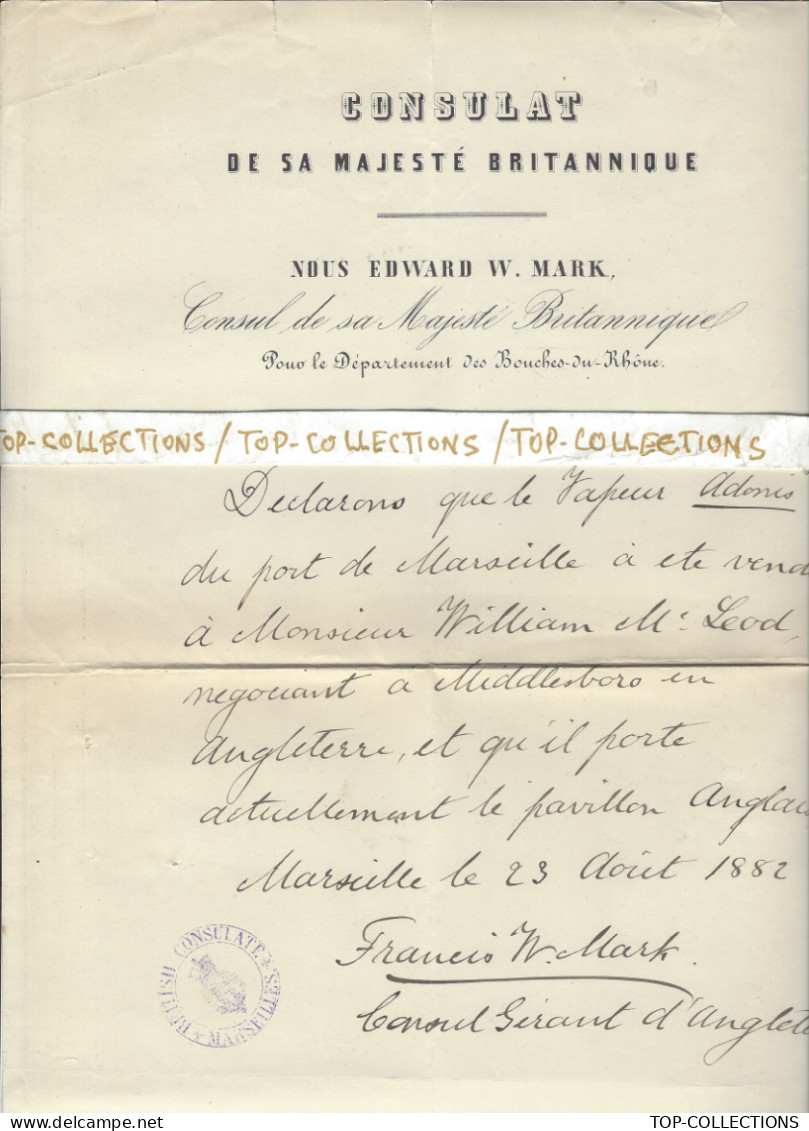 CONSULAT
DE SA MAJESTÉ BRITANNIQUE
NOUS EDWARD W. MARK,
Consul de sa Majesté Britannique
Pour le Département des Bouches-du-Rhône.
TOP-COLLECTIONS / TOP-COLLECTIONS / TOP-COLLECTIONS
Declarons que le Vapeur Adonis
du port de Marseille à ete vend
à Monsieur William Mc Leod,
negociant a Middlesboro en
Angleterre, et qu'il porte
actuellement le pavillon Anglai
Marseille le 23 Août 1882
Francis W. Mark
Consul Gérant d'Anglete
BRITISH CONSULATE MARSEILLES
TOP-COLLECTIONS